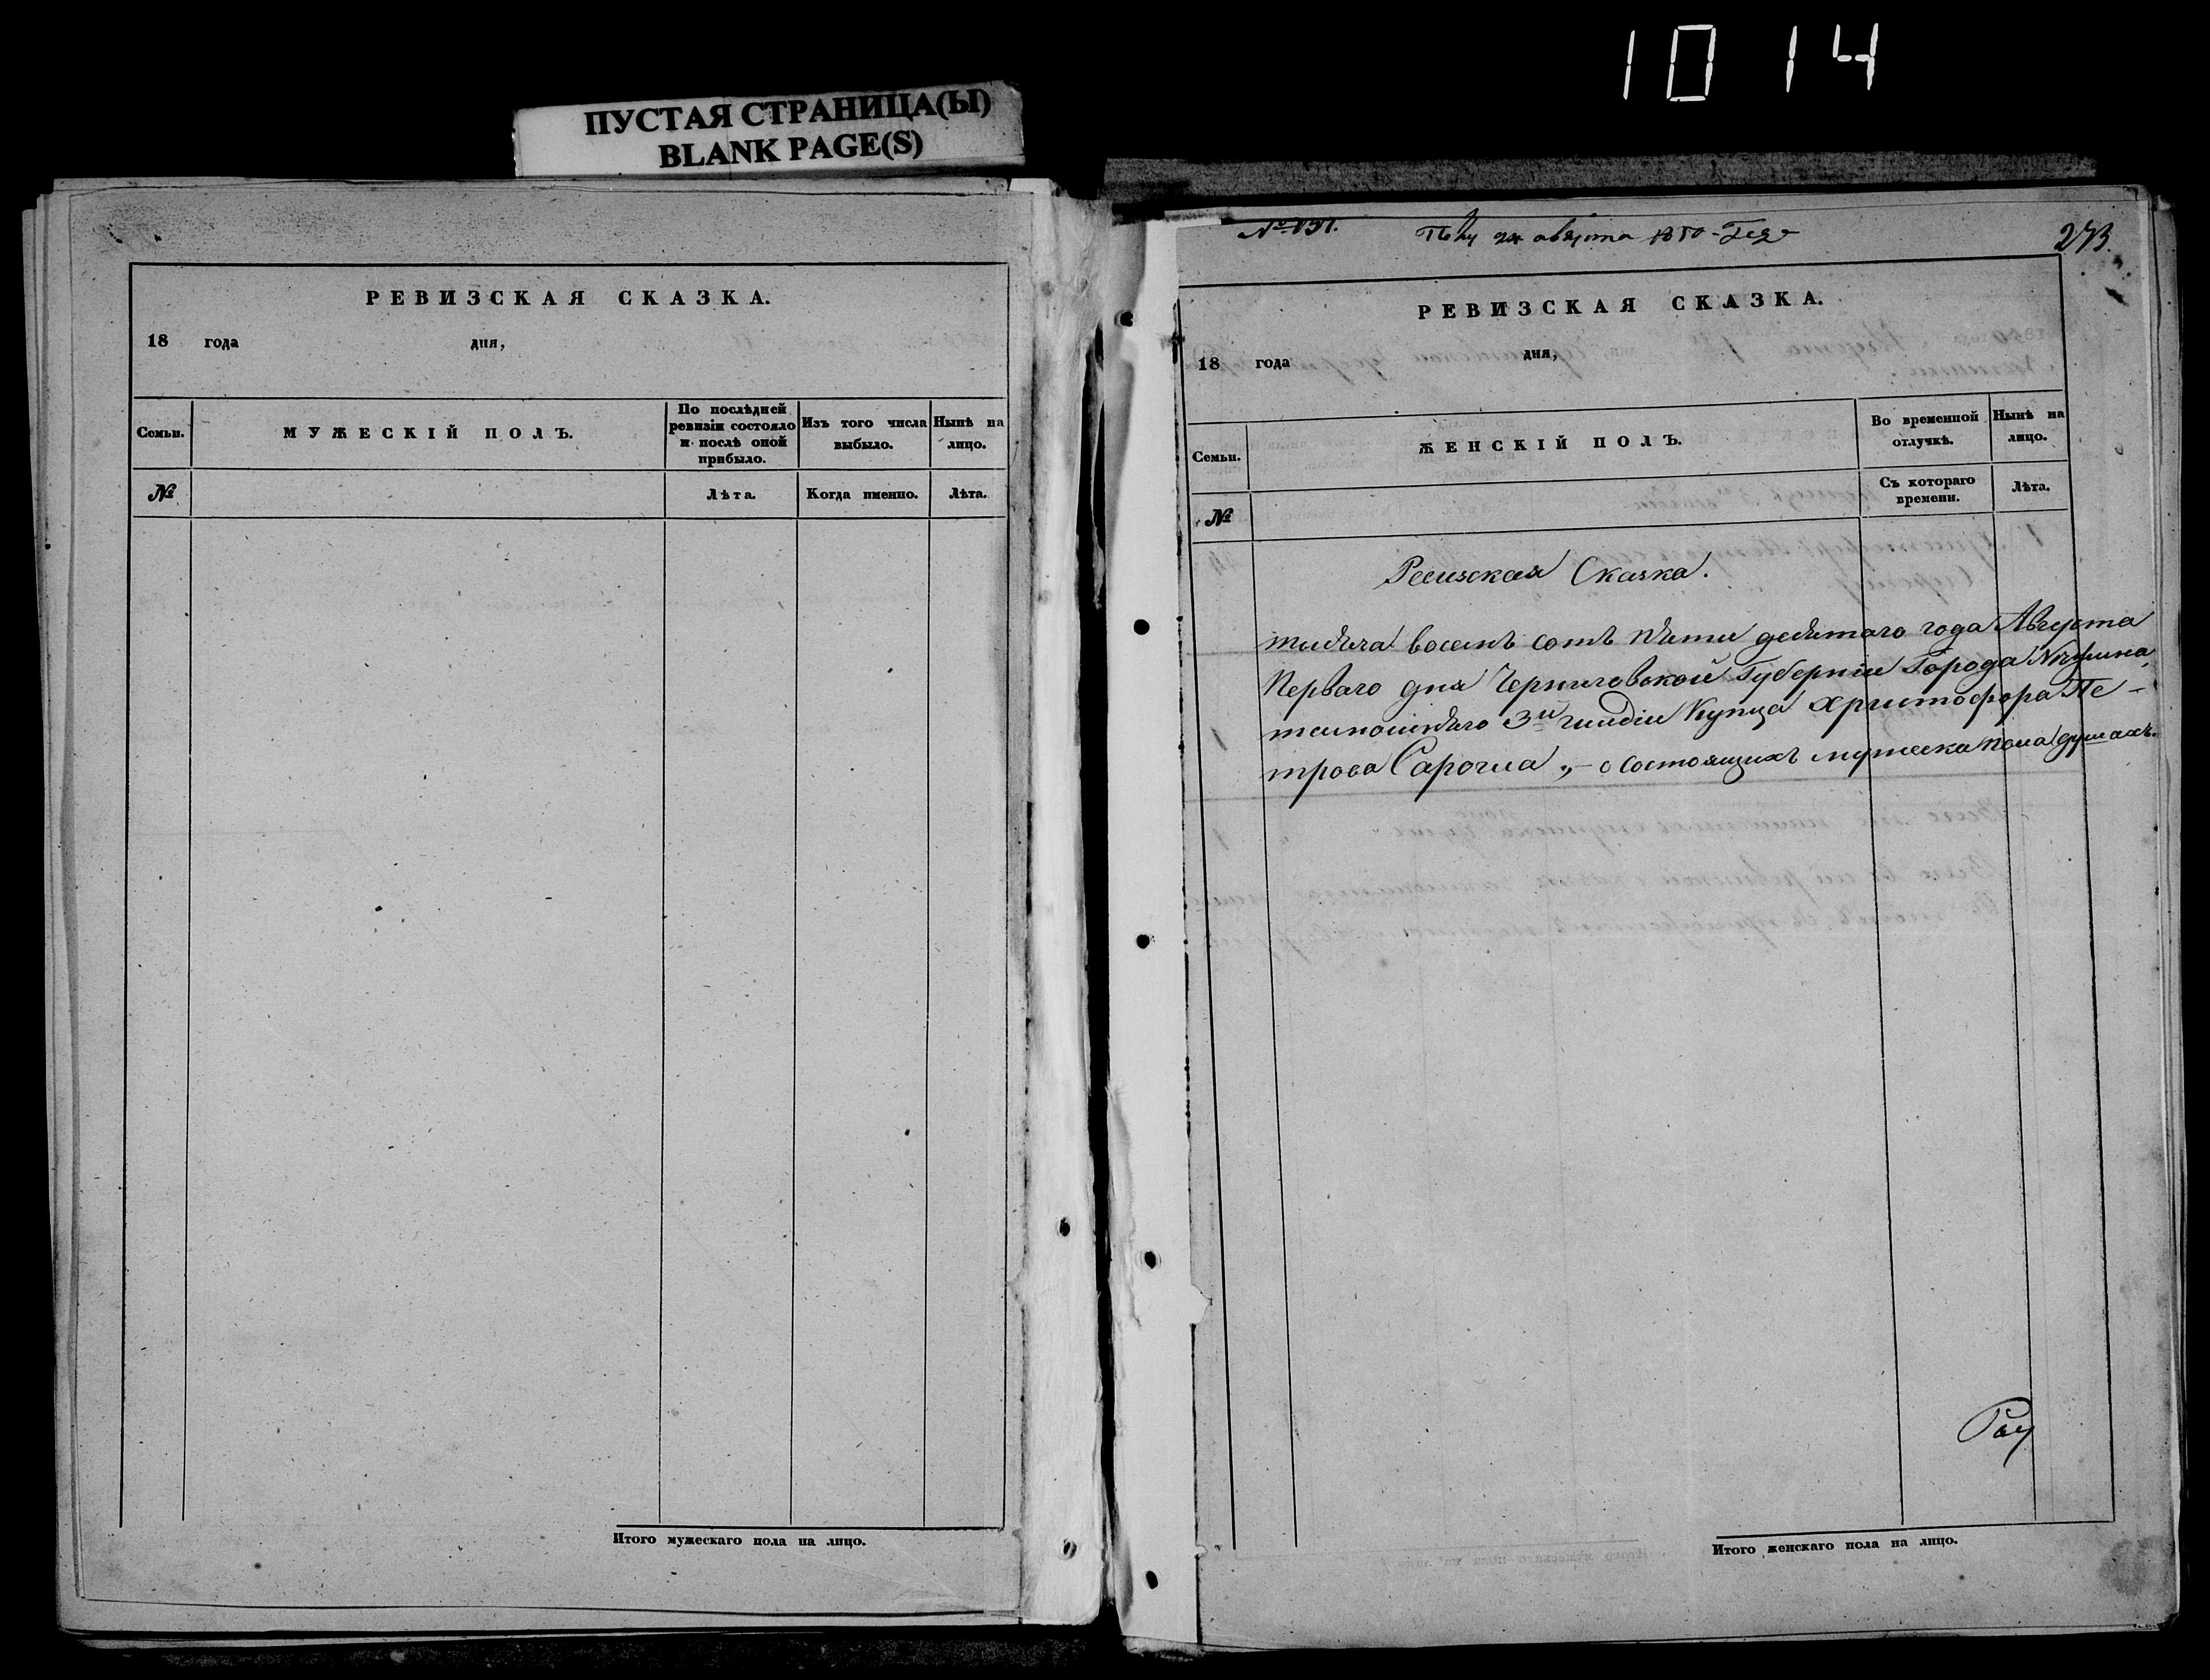 1014
ПУСТАЯ СТРАНИЦА(Ы)
BLANK PAGE(S)
РЕВИЗСКАЯ СКАЗКА.
18 года дня,
Семьи.
МУЖЕСКІЙ ПОЛЪ.
По послѣдней ревизіи состояло и послѣ оной прибыло.
Изъ того числа выбыло.
Нынѣ на лицо.
№
Лѣта.
Когда именно.
Лѣта.
Итого мужескаго пола на лицо.
№ 191.
августа 1850
273.
РЕВИЗСКАЯ СКАЗКА.
18 года дня,
Семьи.
ЖЕНСКІЙ ПОЛЪ.
Во временной отлучкѣ.
Нынѣ на лицо.
№
Съ котораго времени.
Лѣта.
Ревизская Сказка.
тысяча восемь сотъ пяти десятаго года Августа
Перваго дня Черниговской Губерніи Города Нѣжина,
тамошняго 3й гильдіи Купца Христофора Пе-
трова Сарочла, - о состоящихъ мужеска пола душахъ.
Итого женскаго пола на лицо.